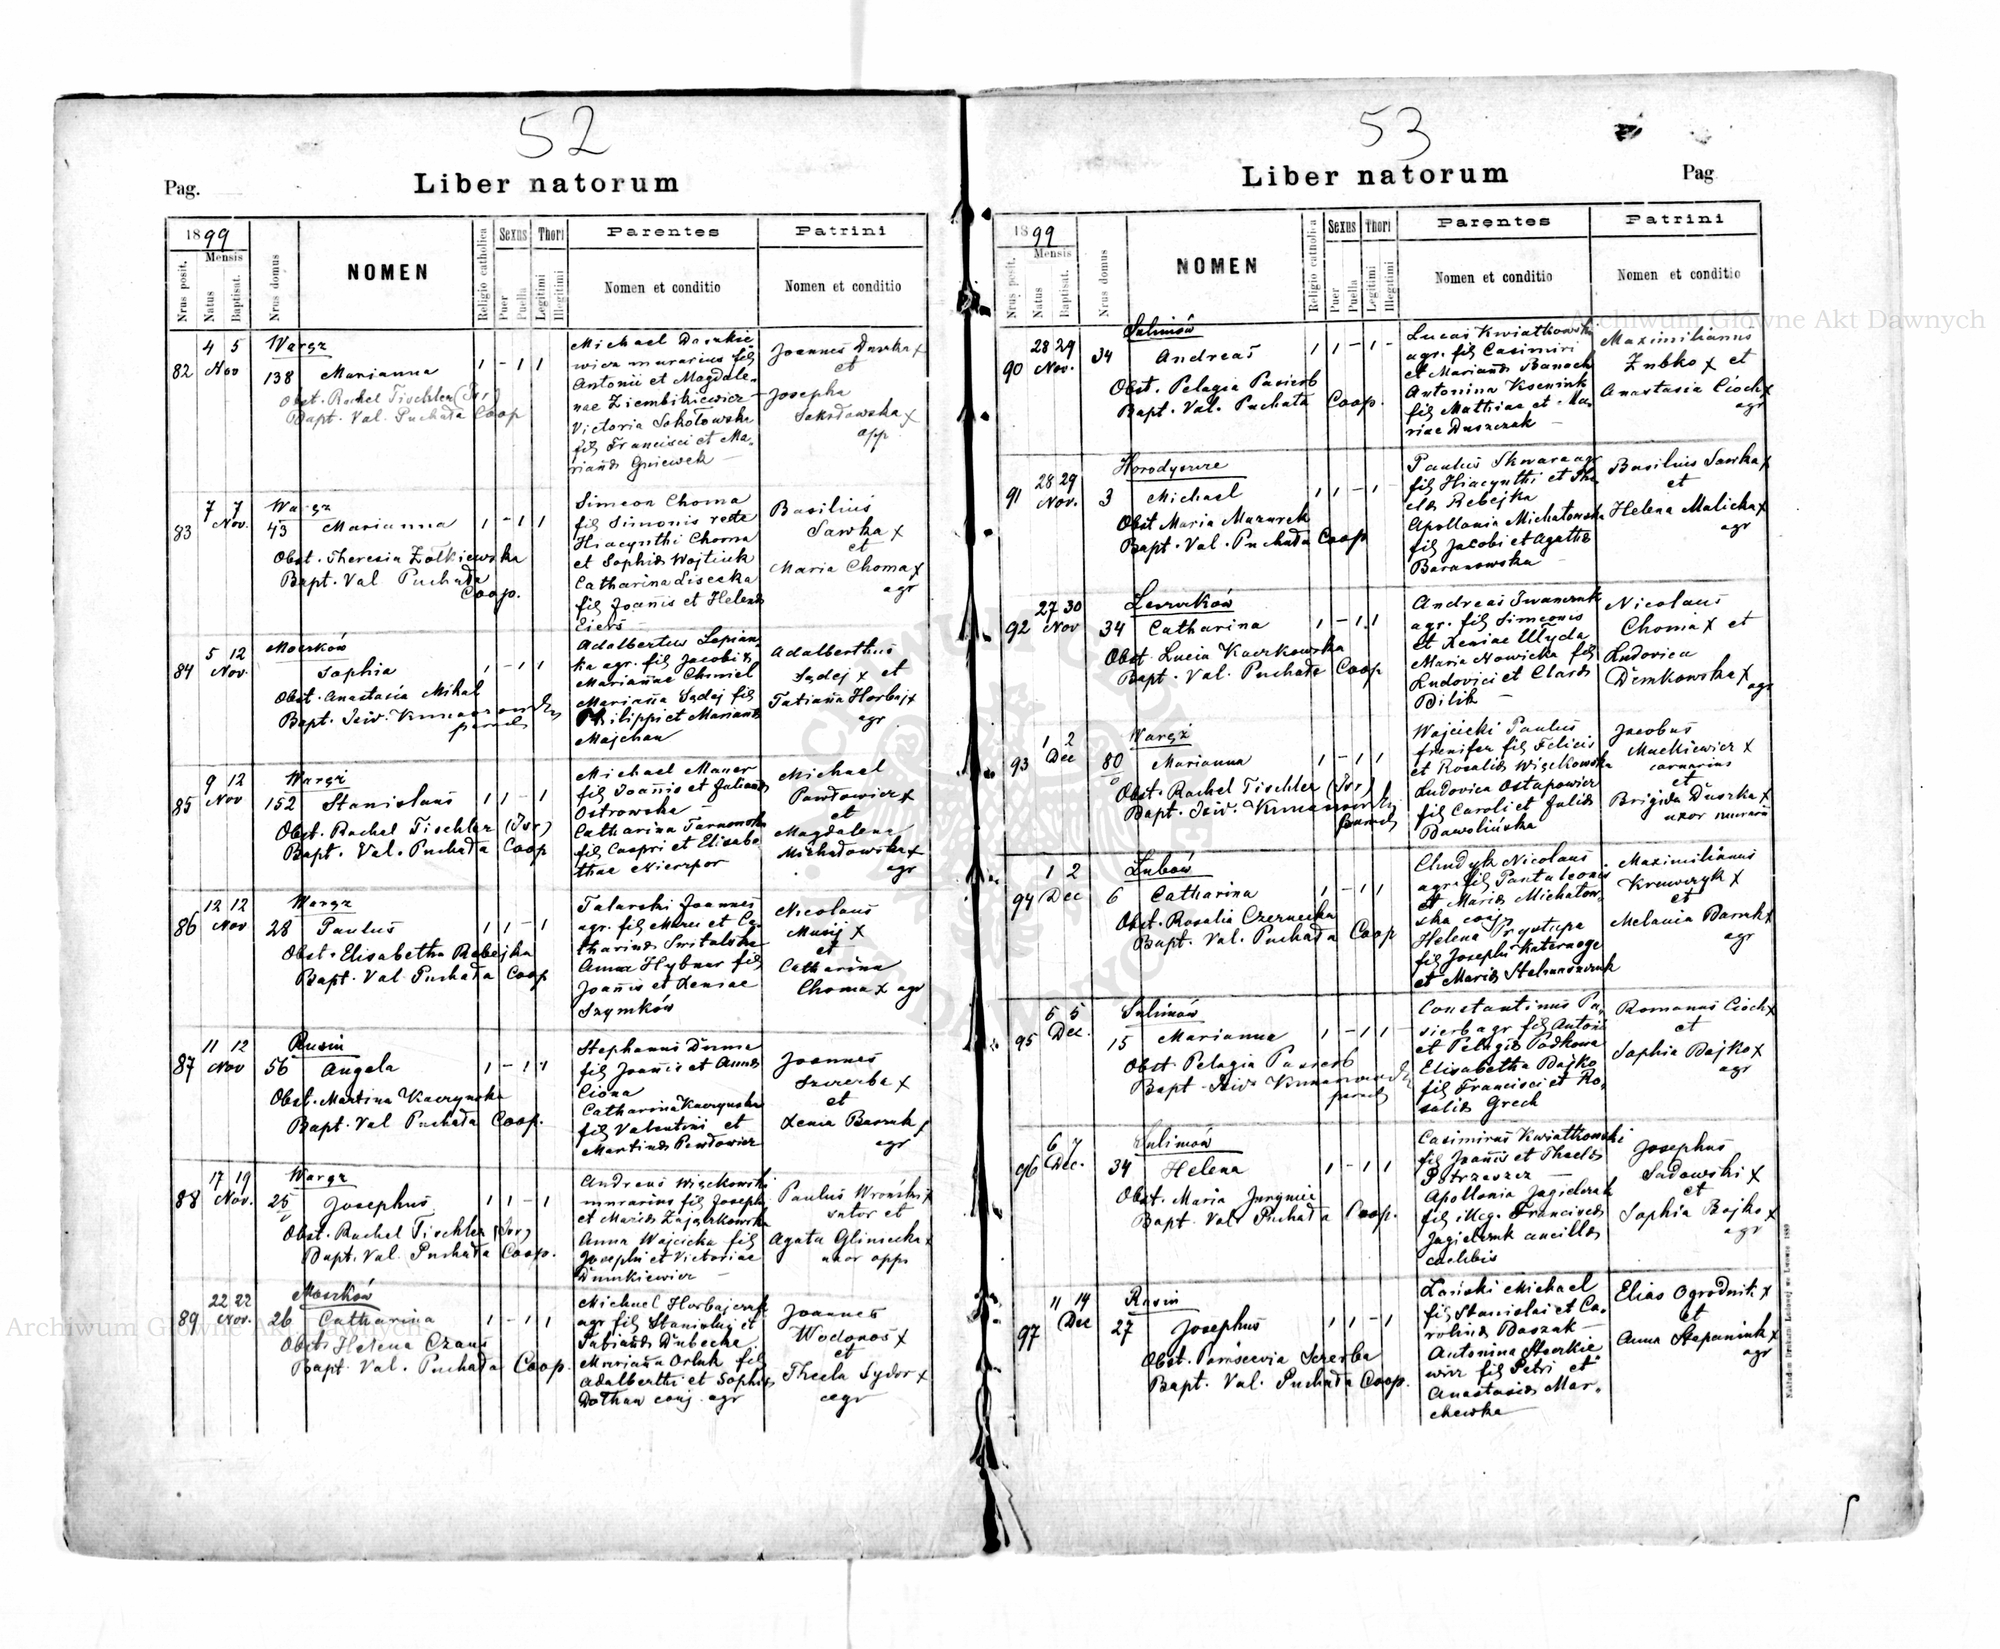 52
Pag.
Liber natorum
1899
Mensis
Nrus posit.
Natus
Baptisat.
Nrus domus
NOMEN
Religio catholica
Sexus
Puer
Puella
Thori
Legitimi
Illegitimi
Parentes
Nomen et conditio
Patrini
Nomen et conditio
82
4 5
Nov
138
Waręż
Marianna
Obst. Rachel Tischler (Isr)
Bapt. Val. Puchała Coop
Michael
wicz murarius fil
Antonii et Magdale-
nae Ziembikiewicz
Victoria Sokołowska
fil Francisci et Ma-
riannae Gniewek
Joannes Duszka x
et
Josepha
x
opp.
83
7 7
Nov.
43
Waręż
Marianna
Obst. Theresia Żółkiewska
Bapt. Val Puchała
Coop.
Simeon Choma
fil Simonis recte
Hiacynthi Choma
et Sophiae Wojtiuk
Catharina Lisecka
fil Joannis et Helenae
Basilius
Sawka x
et
Maria Choma x
agr
84
5 12
Nov.
Moszków
Sophia
Obst. Anastasia Mihal
Bapt. Isid.
Adalbertus
ka agr. fil Jacobi &
Mariannae Chmiel
Marianna Sądej fil
Philippi et Mariannae
Majchan
Adalberthus
Sądej x et
Tatianna Horbaj x
agr
85
9 12
Nov
152
Waręż
Stanislaus
Obst. Rachel Tischler (Isr)
Bapt. Val. Puchała Coop
Michael Maner
fil Joannis et Juliannae
Ostrowska
Catharina
fil Caspri et Elisabe-
thae
Michael
Pawłowicz x
et
Magdalena
Michałowska x
agr
86
12 12
Nov
28
Waręż
Paulus
Obst. Elisabetha Rebejka
Bapt. Val Puchała Coop
Talarski Joannes
agr. fil Marci et Ca-
tharinae
Anna Hybnar fil
Joannis et Xeniae
Szymków
Nicolaus
x
et
Catharina
Choma x agr
87
11 12
Nov
56
Rusin
Angela
Obst. Martina Kaczynska
Bapt. Val Puchała Coop.
Stephanus Duma
fil Joannis et Annae
Ciona
Catharina Kaczynska
fil Valentini et
Martinae Pawłowicz
Joannes
Szczerba x
et
Xenia
agr
88
17 19
Nov.
25
Waręż
Josephus
Obst. Rachel Tischler (Isr)
Bapt. Val. Puchała Coop.
Andreas Więckowski
murarius fil Josephi
et Mariae Zajączkowska
Anna Wojcicka fil
Josephi et Victoriae
Paulus Wroński x
sutor et
Agata Gliniecka x
uxor opp.
89
22 22
Nov.
26
Moszków
Catharina
Obst. Helena Czaus
Bapt. Val. Puchała Coop.
Michael Horbajczuk
agr fil Stanislai et
Fabiannae Dubecka
Marianna Orluk fil
Adalberthi et Sophiae
conj. agr
Joannes
Wodonos x
et
Thecla Sydor x
agr
53
Liber natorum
Pag
1899
Mensis
Nrus posit.
Natus
Baptisat.
Nrus domus
NOMEN
Religio catholica
Sexus
Puer
Puella
Thori
Legitimi
Illegitimi
Parentes
Nomen et conditio
Patrini
Nomen et conditio
90
28 29
Nov.
34
Sulimów
Andreas
Obst. Pelagia Pasierb
Bapt. Val. Puchała Coop.
Lucas Kwiatkowski
agr. fil Casimiri
et Mariannae Banach
Antonina
fil Mathiae et Ma-
riae Duszczak
Maximilianus
Zubko x et
Anastasia Cioch x
agr
91
28 29
Nov.
3
Horodyszcze
Michael
Obst Maria Mazurek
Bapt. Val. Puchała Coop
Paulus Skwara agr
fil Hiacynthi et The-
clae Rebejka
Apollonia Michałowska
fil Jacobi et Agathae
Baranowska
Basilius Sawka x
et
Helena Malicka x
agr
92
27 30
Nov
34
Leszczków
Catharina
Obst. Lucia Kaczkowska
Bapt. Val. Puchała Coop
Andreas Iwanczuk
agr. fil Simeonis
et Xeniae
Maria Nowicka fil
Ludovici et Clarae
Bilik
Nicolaus
Choma x et
Ludovica
Demkowska x
agr
93
1 2
Dec
80
Waręż
Marianna
Obst. Rachel Tischler (Isr)
Bapt. Isid.
Wojcicki Paulus
frenifex fil Felicis
et Rosaliae Więckowska
Ludovica Ostapowicz
fil Caroli et Juliae
Jacobus
Mackiewicz x
carnarius
et
Brigida Duszka x
uxor murarii
94
1 2
Dec
6
Łubów
Catharina
Obst. Rosalia Czernecka
Bapt. Val. Puchała Coop
Chudyk Nicolaus
agr. fil Pantaleonis
et Mariae Michałow-
ska conj.
Helena Prystupa
fil Josephi
et Mariae
Maximilianus
Krawczyk x
et
Melania x
agr
95
5 5
Dec.
15
Sulimów
Marianna
Obst. Pelagia Pasierb
Bapt. Isid.
Constantinus Pa-
sierb agr fil Antoni
et Pelagiae Podkowa
Elisabetha Bojko
fil Francisci et Ro-
saliae Grech
Romanus Cioch x
et
Sophia Bojko x
agr
96
6 7
Dec.
34
Sulimów
Helena
Obst. Maria
Bapt. Val. Puchała Coop.
Casimirus Kwiatkowski
fil Joannis et Theclae
Apollonia Jagielczuk
fil illeg. Franciscae
Jagielczuk ancillae
caelibis
Josephus
Sadowski x
et
Sophia Bojko x
agr
97
11 14
Dec
27
Rusin
Josephus
Obst. Szczerba
Bapt. Val. Puchała Coop.
Łański Michael
fil Stanislai et Ca-
rolinae
Antonina
wicz fil Petri et
Anastasiae Mar-
chewka
Elias x
et
Anna Stepaniuk x
agr
Nakładem Drukarni Ludowej we Lwowie 1889
Archiwum Główne Akt Dawnych
Archiwum Główne Akt Dawnych